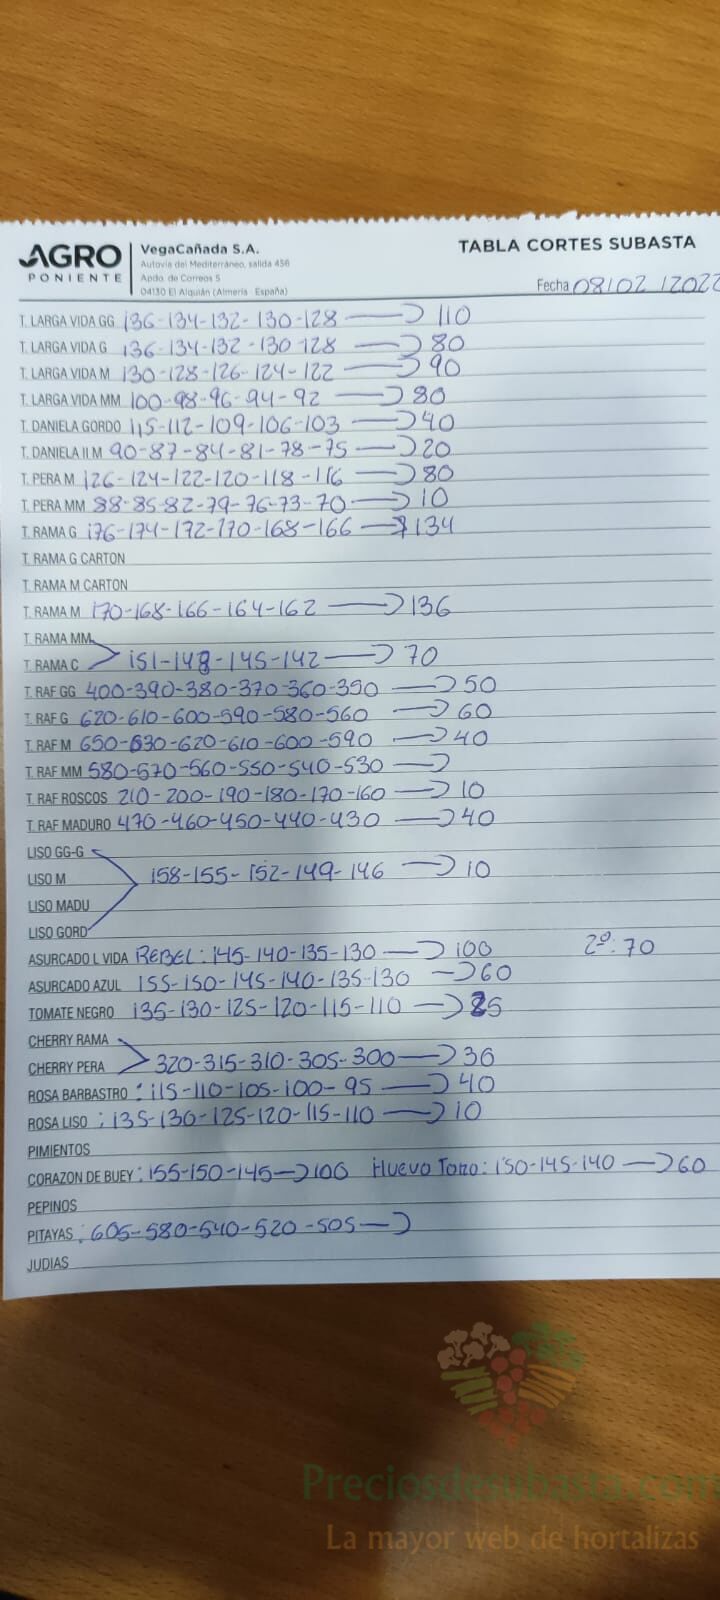 AGRO
PONIENTE
VegaCañada S.A.
Autovía del Mediterráneo, salida 456
Apdo. de Correos 5
04130 El Alquián (Almería - España)
TABLA CORTES SUBASTA
Fecha 08/02/2022
T. LARGA VIDA GG 136-134-132-130-128 → 110
T. LARGA VIDA G 136-134-132-130-128 → 80
T. LARGA VIDA M 130-128-126-124-122 → 90
T. LARGA VIDA MM 100-98-96-94-92 → 80
T. DANIELA GORDO 115-112-109-106-103 → 40
T. DANIELA II M 90-87-84-81-78-75 → 20
T. PERA M 126-124-122-120-118-116 → 80
T. PERA MM 88-85-82-79-76-73-70 → 10
T. RAMA G 176-174-172-170-168-166 → 134
T. RAMA G CARTON
T. RAMA M CARTON
T. RAMA M 170-168-166-164-162 → 136
T. RAMA MM
T. RAMA C 151-148-145-142 → 70
T. RAF GG 400-390-380-370-360-350 → 50
T. RAF G 620-610-600-590-580-560 → 60
T. RAF M 650-630-620-610-600-590 → 40
T. RAF MM 580-570-560-550-540-530 →
T. RAF ROSCOS 210-200-190-180-170-160 → 10
T. RAF MADURO 470-460-450-440-430 → 40
LISO GG-G
LISO M 158-155-152-149-146 → 10
LISO MADU
LISO GORD
ASURCADO L VIDA REBEL: 145-140-135-130 → 100 2º: 70
ASURCADO AZUL 155-150-145-140-135-130 → 60
TOMATE NEGRO 135-130-125-120-115-110 → 25
CHERRY RAMA
CHERRY PERA 320-315-310-305-300 → 36
ROSA BARBASTRO: 115-110-105-100-95 → 40
ROSA LISO: 135-130-125-120-115-110 → 10
PIMIENTOS
CORAZON DE BUEY: 155-150-145 → 100 Huevo Toro: 150-145-140 → 60
PEPINOS
PITAYAS: 605-580-540-520-505 →
JUDIAS
Preciosdesubasta.com
La mayor web de hortalizas